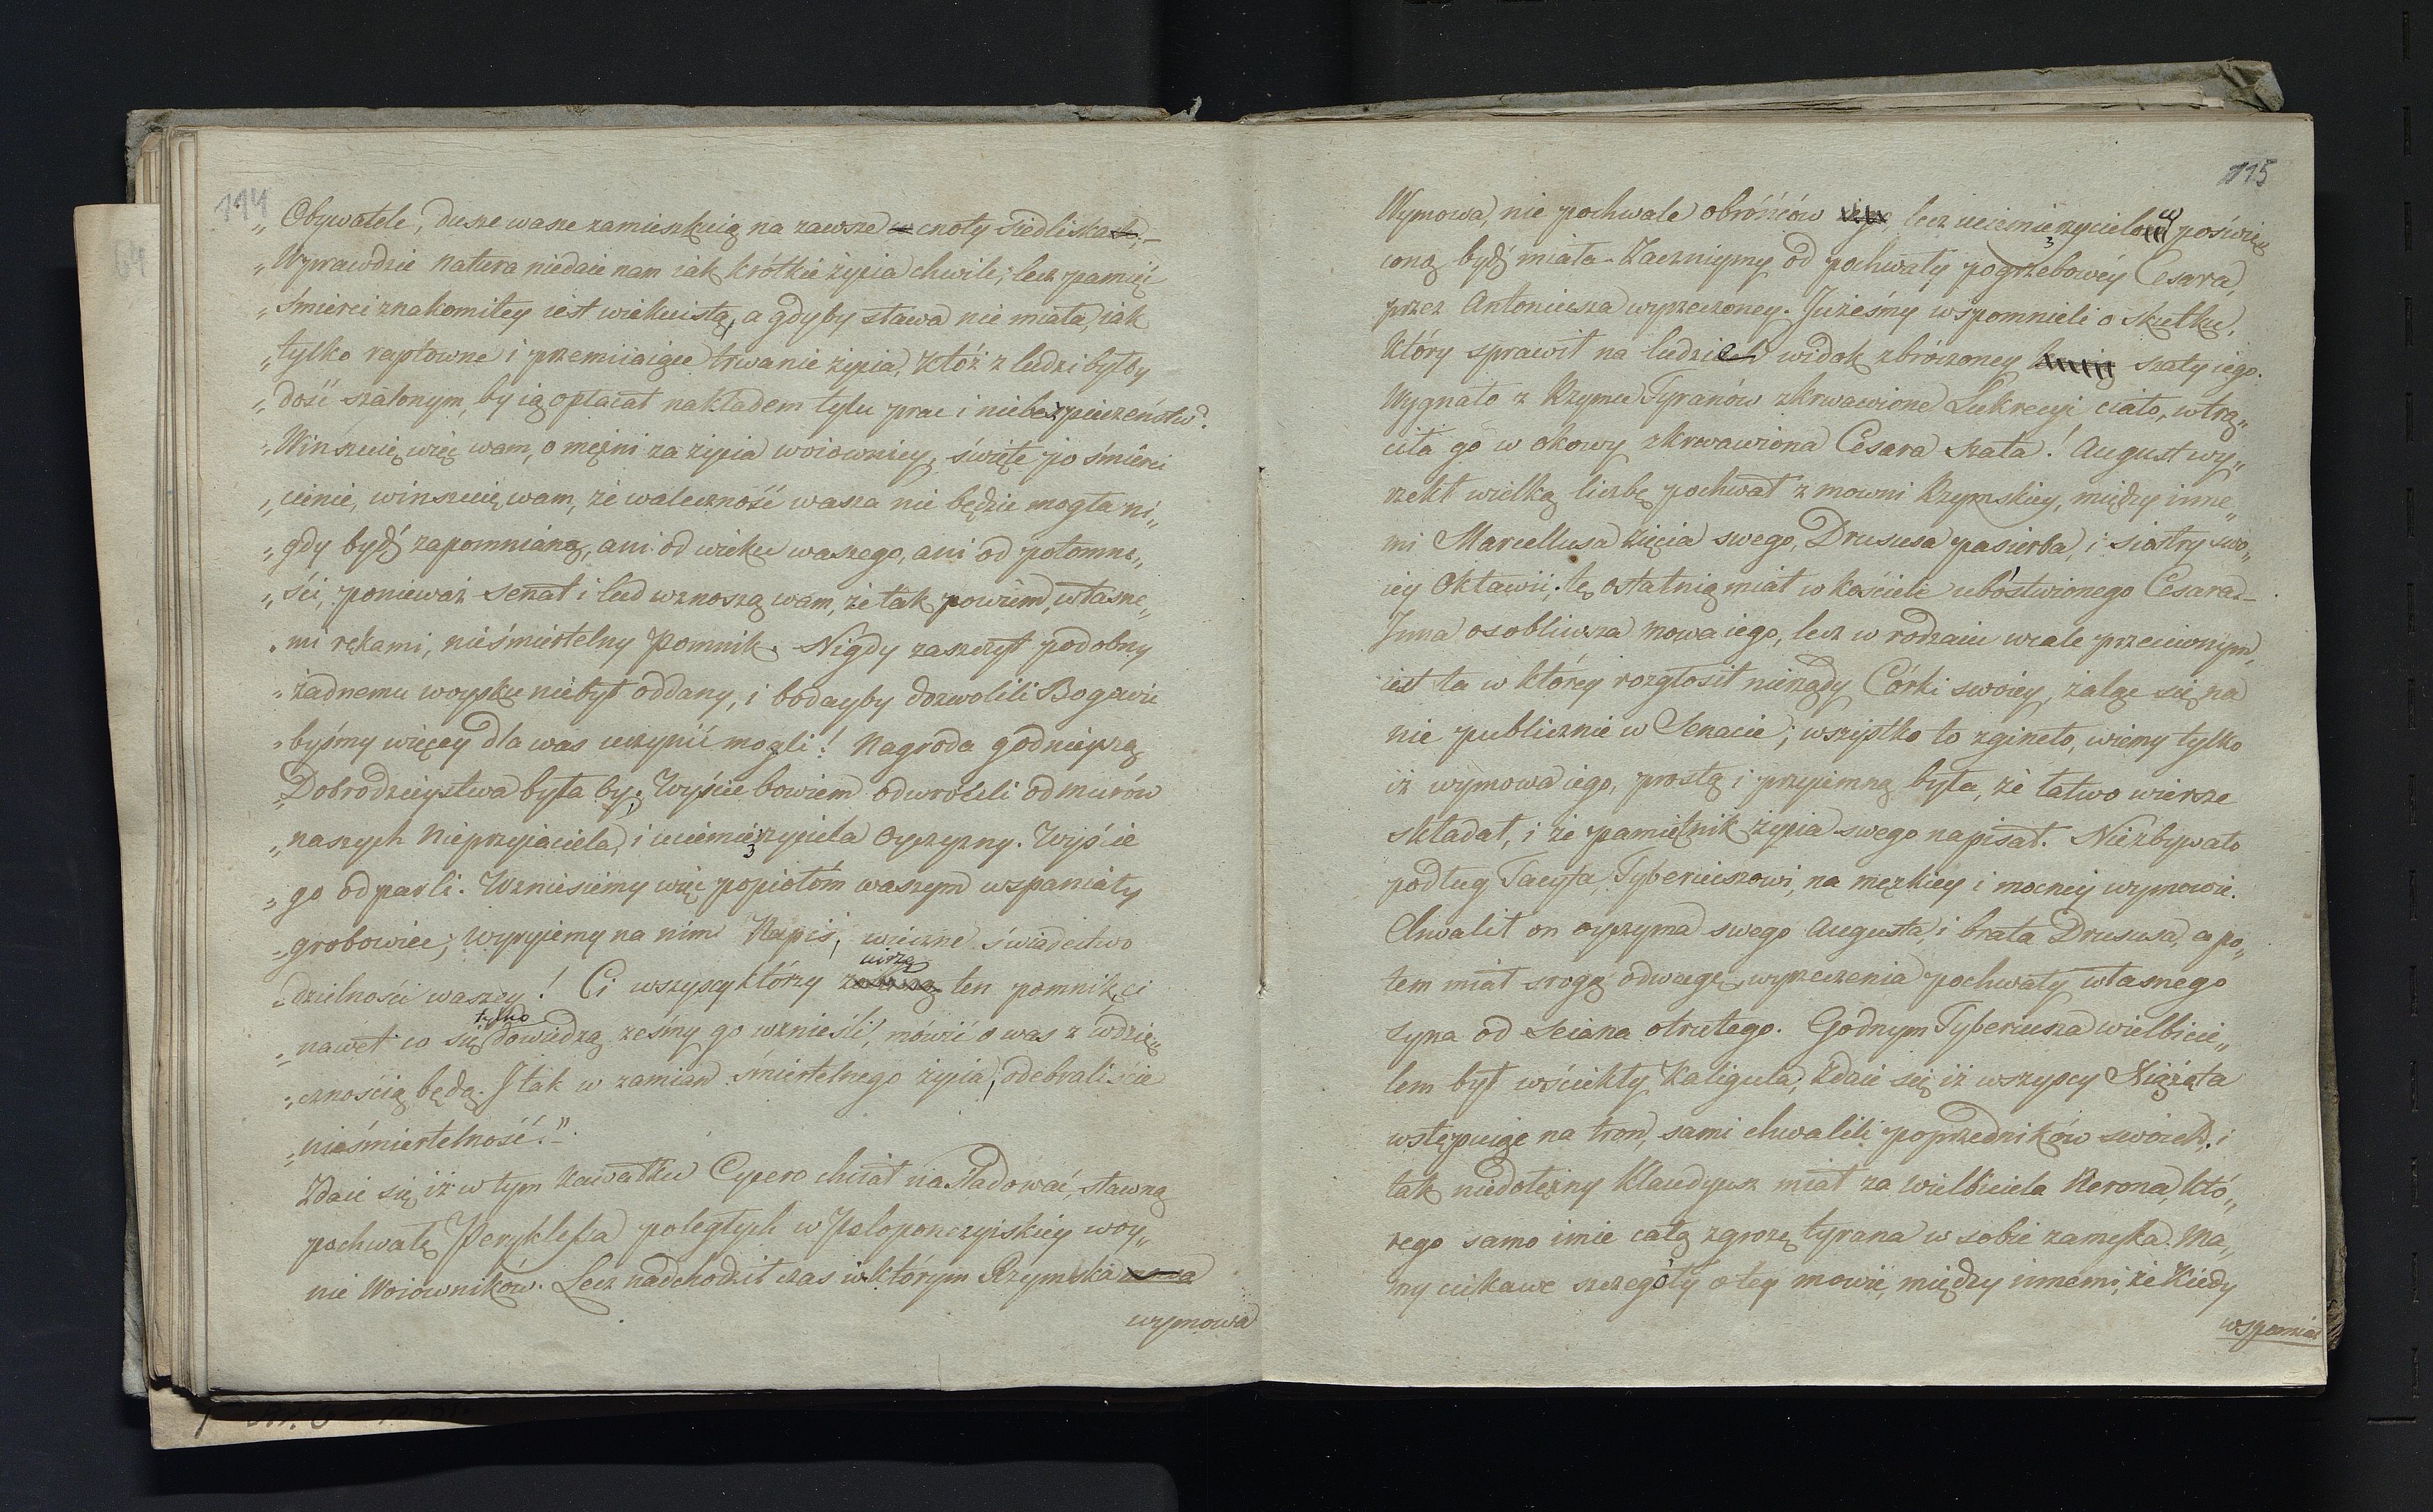 114
„Obywatele, dusze wasze zamieszkuią na zawsze cnoty siedliska.–
„Wprawdzie natura niedaie nam iak krótkie życia chwile; lecz pamięć
„śmierci znakomitey iest wiekuistą, a gdyby sława nie miała, iak
„tylko raptowne i przemiiaiące trwanie życia, któż z ludzi byłby
„dość szalonym, by ią opłacał nakładem tylu prac i niebezpieczeństw?
„Winszuię więc wam, o mężni za życia woiownicy, święte po śmierci
„cienie, winszuię wam, że waleczność wasza nie będzie mogła ni„
„gdy bydź zapomnianą, ani od wieku waszego, ani od potomno„
„ści, ponieważ senat i lud wznoszą wam, że tak powiem, własne„
„mi rękami, nieśmiertelny Pomnik. Nigdy zaszczyt podobny
„żadnemu woysku niebył oddany, i bodayby dozwolili Bogowie
„byśmy więcey dla was uczynić mogli! Nagroda godnieyszą
„Dobrodzieystwa byłaby. Wyście bowiem odwrócili od murów
„naszych Nieprzyiaciela, i uciemiężyciela Oyczyzny. Wyście
„go odparli. Wzniesiemy więc popiołóm waszym wspaniały
„grobowiec; wyryiemy na nim Napis, wieczne świadectwo
„dzielności waszey! Ci wszyscy którzy uyrzą ten pomnik, ci
„nawet co się tylko dowiedzą żeśmy go wznieśli, mówić o was z wdzię„
„cznością będą. I tak w zamian śmiertelnego życia, odebraliście
„nieśmiertelność."
Zdaie się iż w tym kawałku Cycero chciał naśladować, sławną
pochwałę Peryklessa poległych w Peloponezyiskiey woy„
nie Woiowników. Lecz nadchodził czas w którym Rzymska
wymowa
115
Wymowa, nie pochwale obrońców, lecz uciemiężycielów poświę„
coną bydź miała. Zacznijmy od pochwały pogrzebowéy Cesara,
przez Antoniusza wyrzeczoney. Jużeśmy wspomnieli o skutku,
który sprawił na ludziach widok zbroczoney szaty iego.
Wygnało z Rzymu Tyranów zkrwawione Lukrecyi ciało, wtrą„
ciła go w okowy zkrwawiona Cesara szata! August wy„
rzekł wielką liczbę pochwał z mowni Rzymskiey, między inne„
mi Marcellusa zięcia swego, Drususa pasierba, i siostry swo„
iey Oktawii; tę ostatnią miał w kościele ubóstwionego Cesara.–
Inna osobliwsza mowa iego, lecz w rodzaiu wcale przeciwnym,
iest ta w którey rozgłosił nierządy Córki swoiey, żaląc się na
nie publicznie w Senacie; wszystko to zgineło, wiemy tylko
iż wymowa iego, prostą i przyiemną była, że łatwo wiersze
składał, i że pamiętnik życia swego napisał. Niezbywało
podług Tacyta, Tyberiuszowi, na męzkiey i mocney wymowie.
Chwalił on oyczyma swego Augusta, i brata Drususa, a po„
tem miał srogą odwagę, wyrzeczenia pochwały własnego
syna od Seiana otrutego. Godnym Tyberiusza wielbicie„
lem był wściekły Kaligula; Zdaie się iż wszyscy Xiążęta
wstępuiąc na tron, sami chwalili poprzedników swoich; i
tak niedołężny Klaudyusz miał za wielbiciela Nerona, któ„
rego samo imie całą zgrozę tyrana w sobie zamyka. Ma„
my ciekawe szczegóły o tey mowie, między innemi, że kiedy
wspomniał